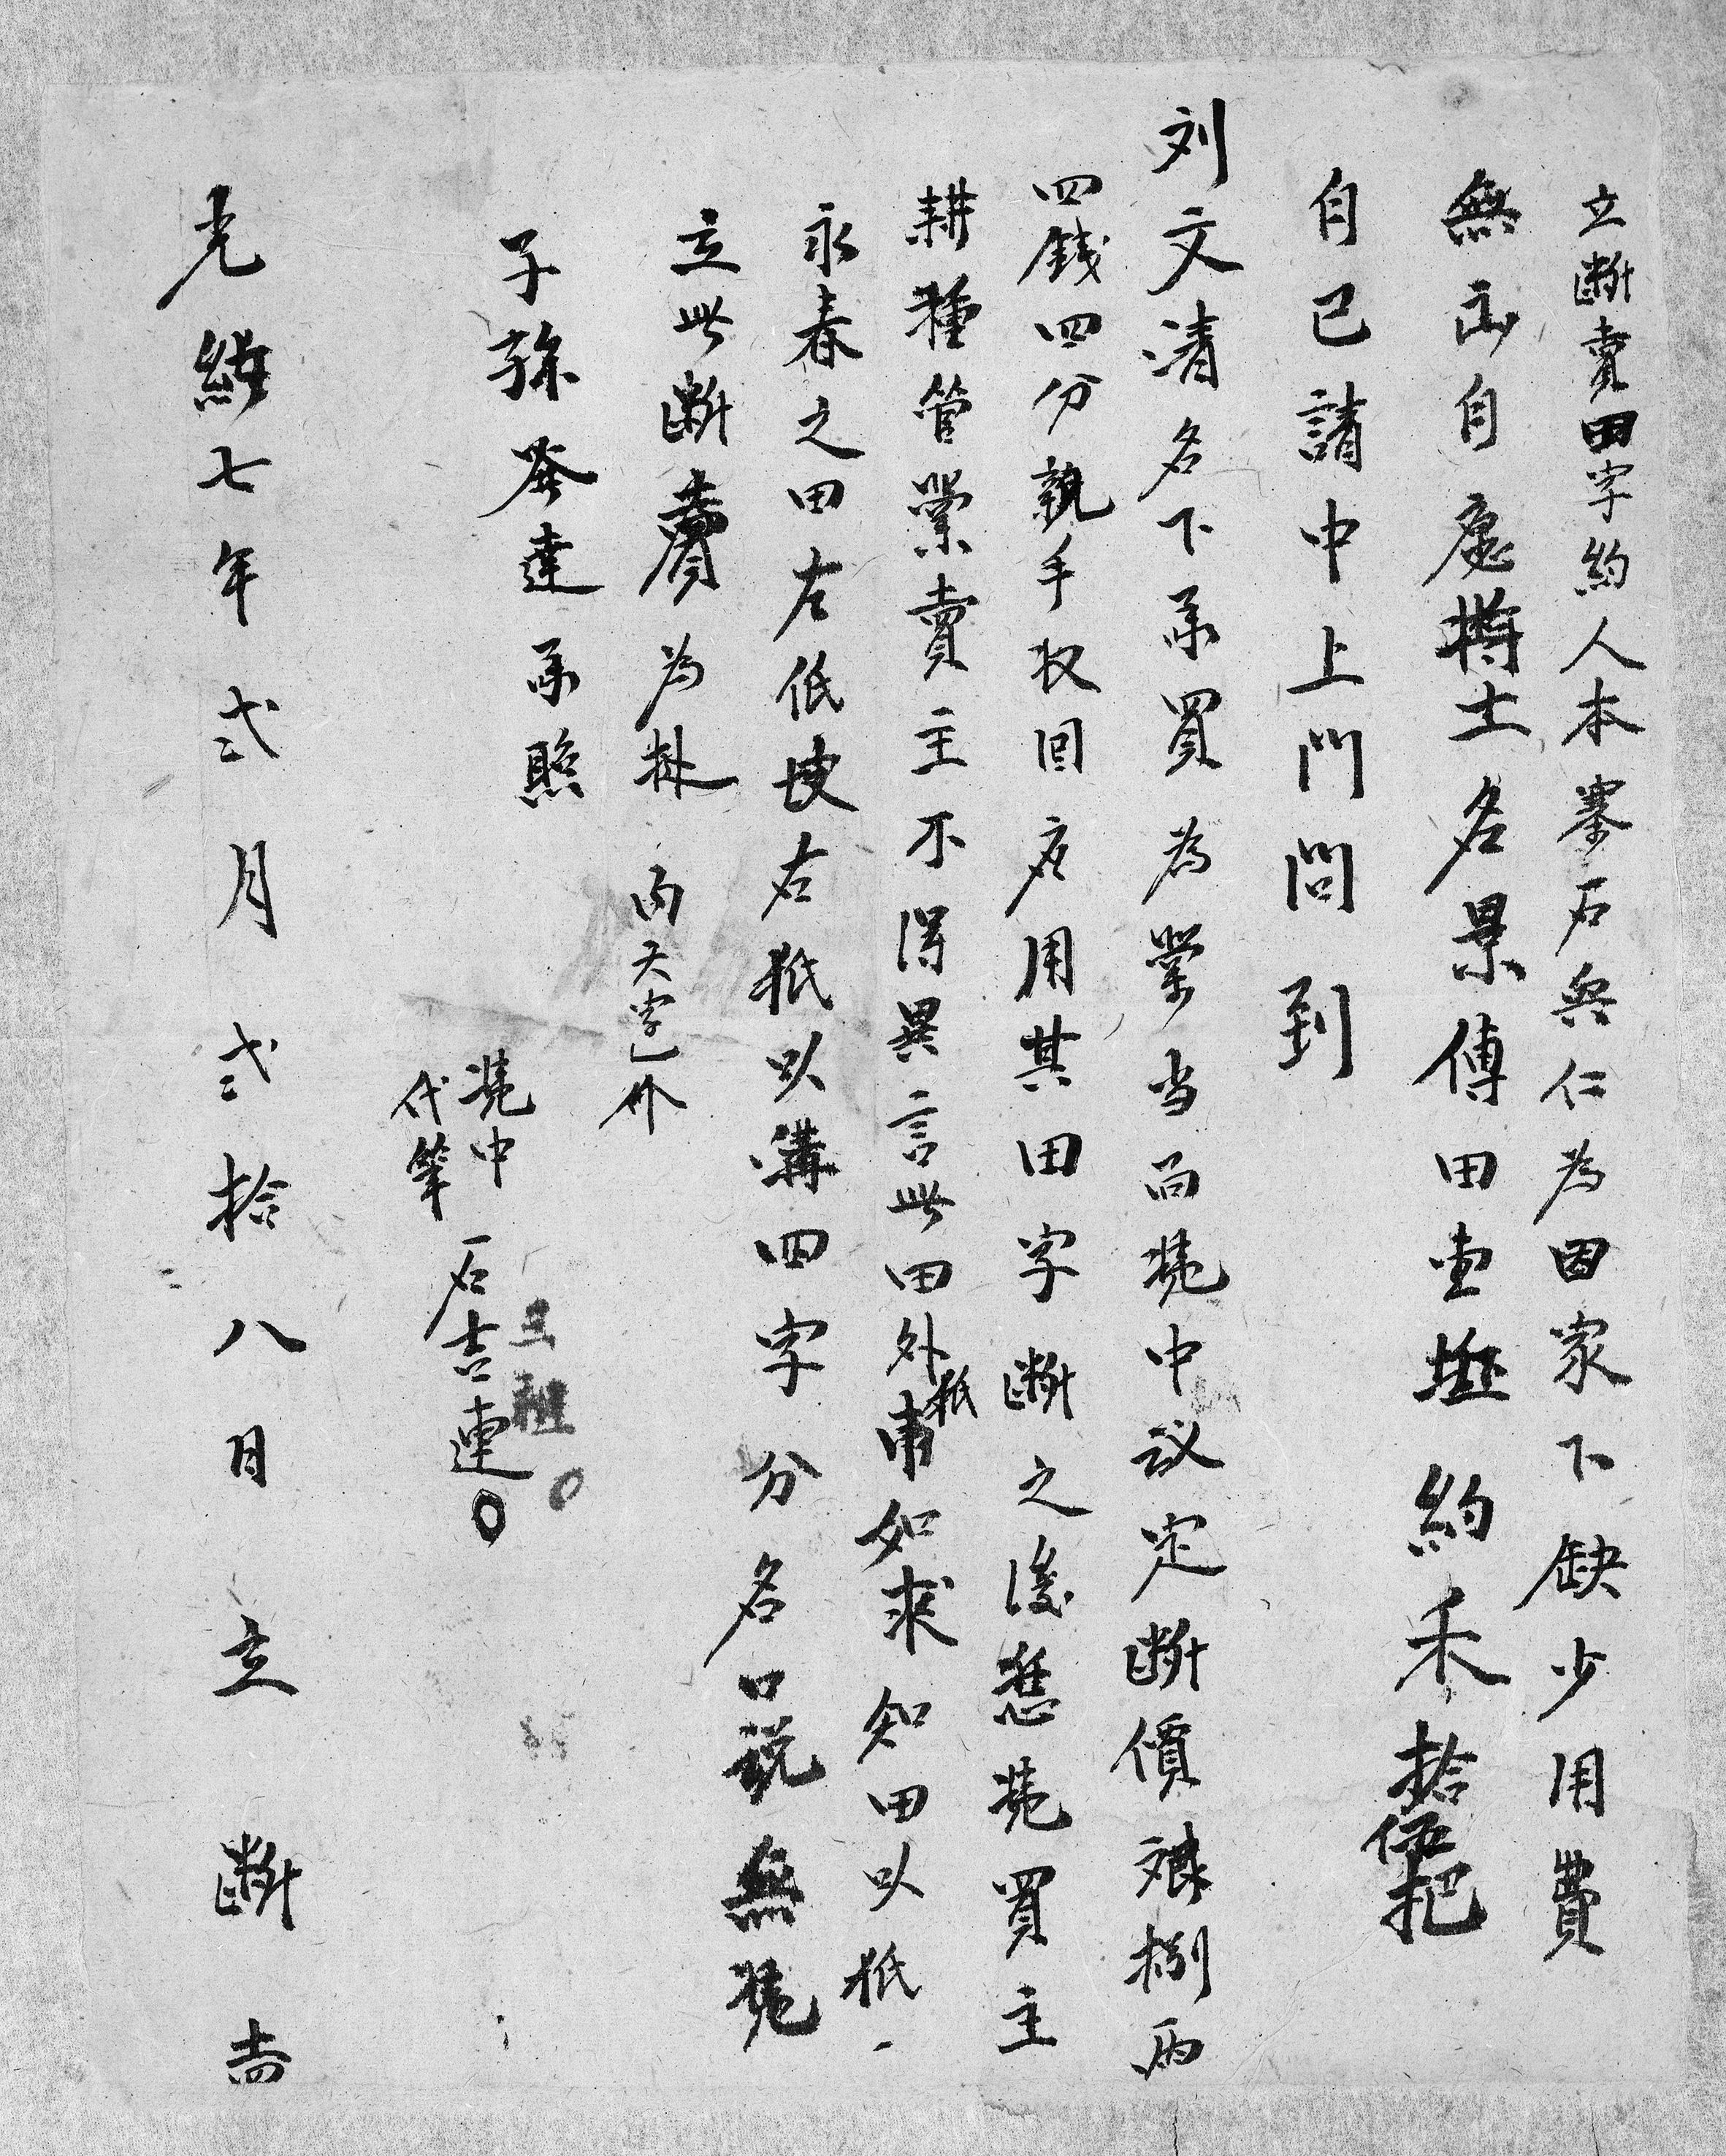 立断賣田字約人本寨石兵仁為因家下缺少用費
無出自處将土名景傳田壹坵約禾拾伍把
自己請中上門問到
刘文清名下承買為業当面凭中议定断價銀捌両
四錢四分親手收回应用其田字断之後恁凭買主
耕種管業賣主不得異言此田外抵甫如求知田以抵
永春之田左低坡右抵以溝四字分名口説無凭
立此断賣為據 内天字一介
子孫發達承照
凭中 王租
代筆 石吉連
光緒七年弍月弍拾八日立断賣